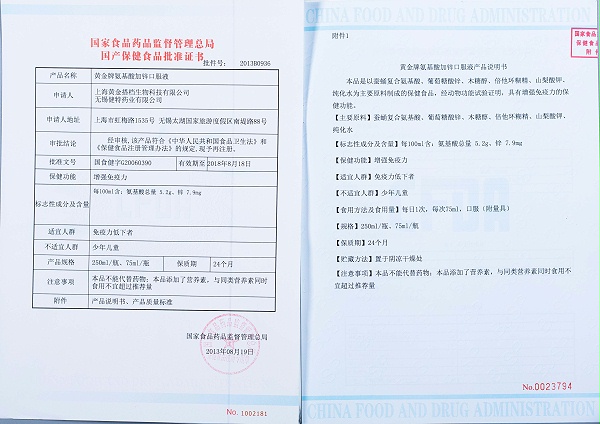 国家食品药品监督管理总局
国产保健食品批准证书
批件号: 2013B0936
产品名称 黄金牌氨基酸加锌口服液
申请人 上海黄金搭档生物科技有限公司
无锡健特药业有限公司
申请人地址 上海市虹梅路1535号 无锡太湖国家旅游度假区南堤路88号
审批结论 经审核,该产品符合《中华人民共和国食品卫生法》和
《保健食品注册管理办法》的规定,现予再注册。
批准文号 国食健字G20060390 有效期至 2018年8月18日
保健功能 增强免疫力
标志性成分及含量 每100ml含: 氨基酸总量 5.2g、锌 7.9mg
适宜人群 免疫力低下者
不适宜人群 少年儿童
产品规格 250ml/瓶、75ml/瓶 保质期 24个月
注意事项 本品不能代替药物; 本品添加了营养素, 与同类营养素同时
食用不宜超过推荐量
附件 产品说明书、产品质量标准
国家食品药品监督管理总局
2013年08月19日
No. 1002181
CHINA FOOD AND DRUG ADMINISTRATION
附件1
国家食品
保健食品
附件
黄金牌氨基酸加锌口服液产品说明书
本品是以蚕蛹复合氨基酸、葡萄糖酸锌、木糖醇、倍他环糊精、山梨酸钾、
纯化水为主要原料制成的保健食品, 经动物功能试验证明, 具有增强免疫力的保
健功能。
【主要原料】蚕蛹复合氨基酸、葡萄糖酸锌、木糖醇、倍他环糊精、山梨酸钾、
纯化水
【标志性成分及含量】每100ml含: 氨基酸总量 5.2g、锌 7.9mg
【保健功能】增强免疫力
【适宜人群】免疫力低下者
【不适宜人群】少年儿童
【食用方法及食用量】每日1次, 每次75ml, 口服 (附量具)
【规格】250ml/瓶、75ml/瓶
【保质期】24个月
【贮藏方法】置于阴凉干燥处
【注意事项】本品不能代替药物; 本品添加了营养素, 与同类营养素同时食用不
宜超过推荐量
No.0023794
CHINA FOOD AND DRUG ADMINISTRATION